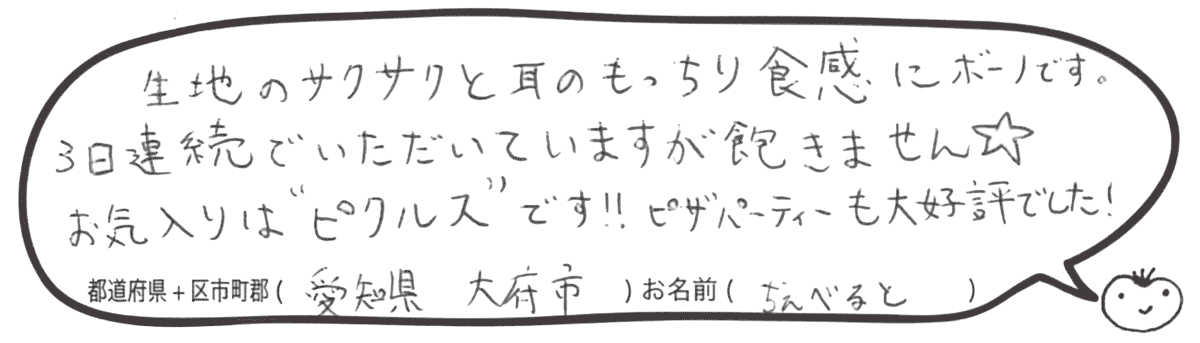 生地のサクサクと耳のもっちり食感にボーノです。
3日連続でいただいていますが飽きません☆
お気入りは"ピクルス"です!! ピザパーティーも大好評でした!
都道府県+区市町郡( 愛知県 大府市 )お名前( ぢぇべると )